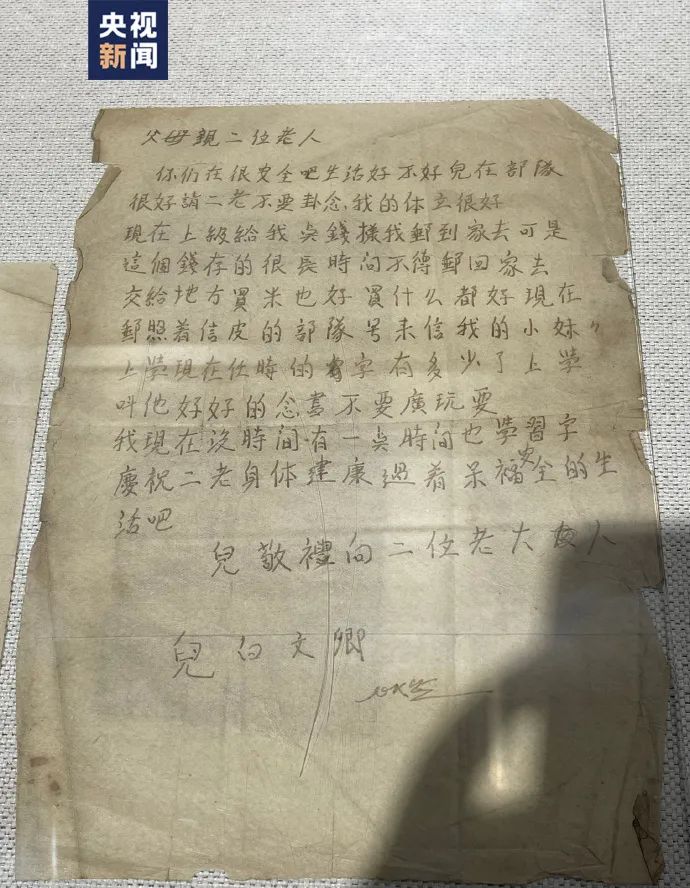 央视
新闻
父母親二位老人
你们在很安全吧生活好不好兒在部隊
很好請二老不要卦念我的体立很好
現在上級給我点錢様我郵到家去可是
這個錢存的很長時间不得郵回家去
交給地方買米也好買什么都好現在
郵照着信皮的部隊号来信我的小妹〃
上學現在仕時的字有多少了上學
叫他好好的念書不要廣玩耍
我現在没時间有一点時间也學習字
慶祝二老身体建康過着呆福安全的生
活吧
兒敬禮向二位老大人
兒白文卿